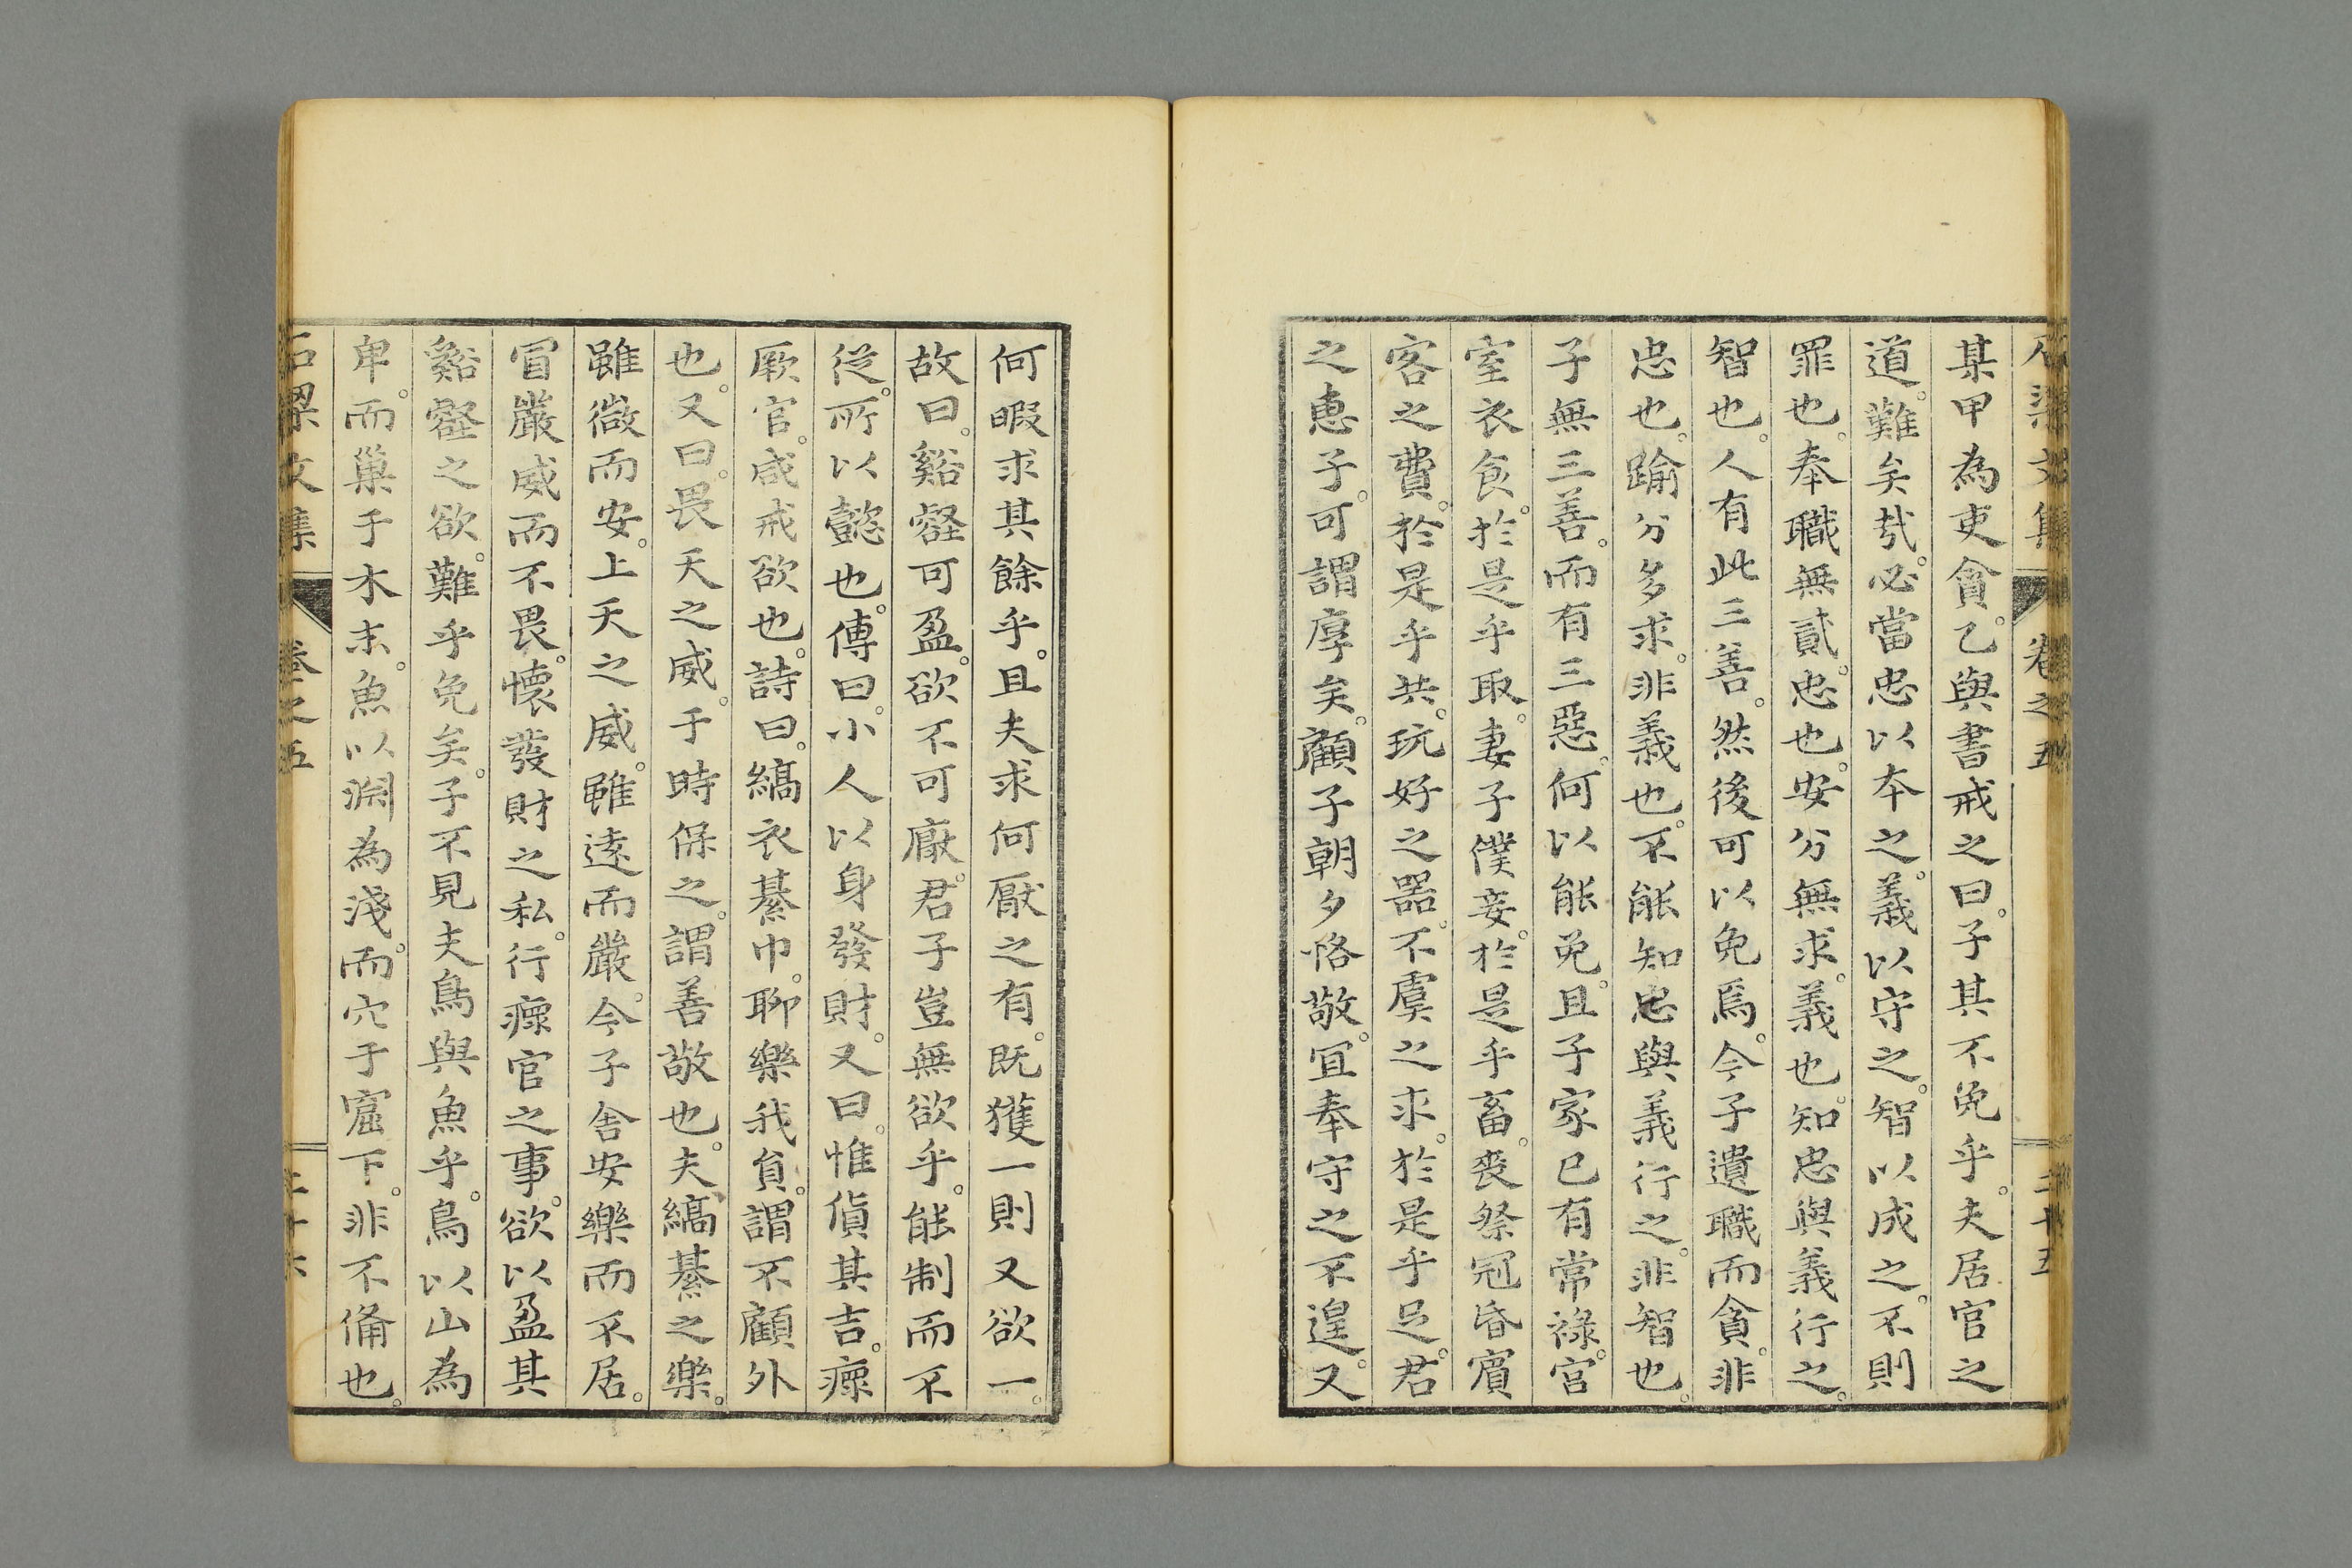 石梁文集 卷之五 二十五
某甲為吏貪。乙與書戒之曰。子其不免乎。夫居官之
道。難矣㢤。必當忠以本之。義以守之。智以成之。不則
罪也。奉職無貳。忠也。安分無求。義也。知忠與義行之。
智也。人有此三善。然後可以免焉。今子遺職而貪。非
忠也。踰分多求。非義也。不能知忠與義行之。非智也。
子無三善。而有三惡。何以能免。且子家已有常祿。宮
室衣食。於是乎取。妻子僕妾。於是乎畜。喪祭冠昏賓
客之費。於是乎共。玩好之器。不虞之求。於是乎足。君
之惠子。可謂厚矣。顧子朝夕恪敬。宜奉守之不遑。又
何暇求其餘乎。且夫求何厭之有。既獲一則又欲一。
故曰。谿壑可盈。欲不可厭。君子豈無欲乎。能制而不
從。所以懿也。傳曰。小人以身發財。又曰。惟貨其吉。瘝
厥官。咸戒欲也。詩曰。縞衣綦巾。聊樂我員。謂不顧外
也。又曰。畏天之威。于時保之。謂善敬也。夫縞綦之樂。
雖微而安。上天之威。雖遠而嚴。今子舍安樂而不居。
冒嚴威而不畏。懷發財之私。行瘝官之事。欲以盈其
谿壑之欲。難乎免矣。子不見夫鳥與魚乎。鳥以山為
卑。而巢于木末。魚以淵為淺。而穴于窟下。非不俻也。
石梁文集 卷之五 二十六